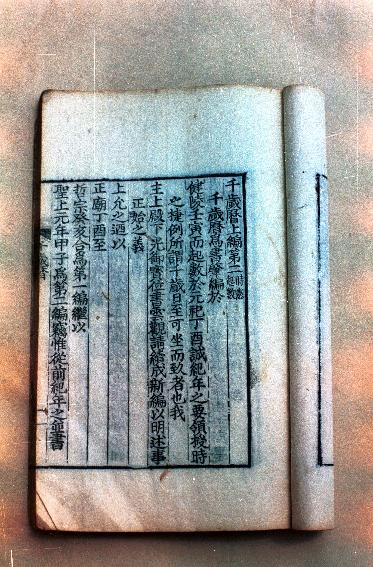 千歲曆上編第二時憲起數
千歲曆爲書肇編於
健陵壬寅而起數於元祀丁酉誠紀年之要領授時
之捷例所謂千歲日至可坐而致者也我
主上殿下光御寶位書雲觀請繕成新編以明述事
正始之義
上允之迺以
正廟丁酉至
哲宗癸亥合爲第一編繼以
聖上元年甲子爲第二編竊惟從前紀年之並書